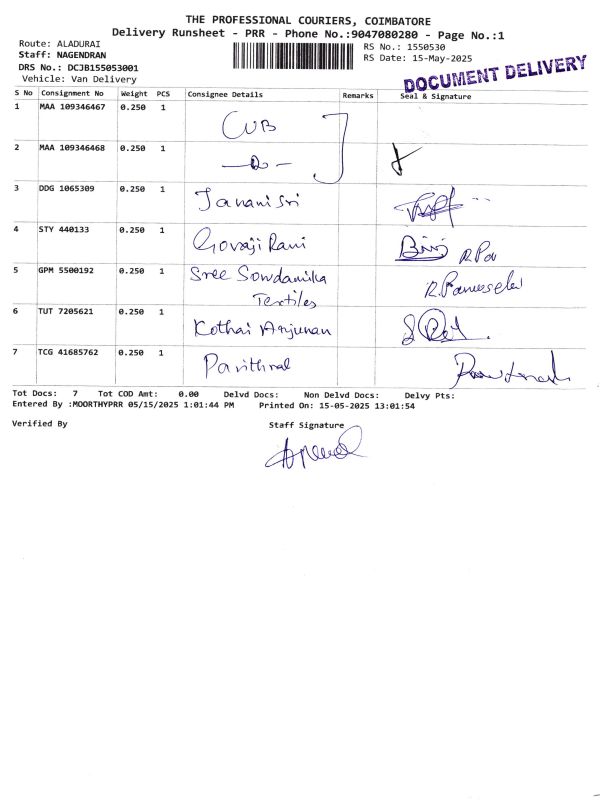 THE PROFESSIONAL COURIERS, COIMBATORE
Delivery Runsheet - PRR - Phone No.:9047080280 - Page No.:1
Route: ALADURAI
Staff: NAGENDRAN
DRS No.: DCJB155053001
Vehicle: Van Delivery
RS No.: 1550530
RS Date: 15-May-2025
DOCUMENT DELIVERY
S No Consignment No Weight PCS Consignee Details Remarks Seal & Signature
1 MAA 109346467 0.250 1 CUB
2 MAA 109346468 0.250 1
3 DDG 1065309 0.250 1 Jananisri
4 STY 440133 0.250 1 Govaji Rani
5 GPM 5500192 0.250 1 Sree Sowdamika
Textiles
6 TUT 7205621 0.250 1 Kothai Anjunan
7 TCG 41685762 0.250 1
Tot Docs: 7 Tot COD Amt: 0.00 Delvd Docs: Non Delvd Docs: Delvy Pts:
Entered By :MOORTHYPRR 05/15/2025 1:01:44 PM Printed On: 15-05-2025 13:01:54
Verified By Staff Signature